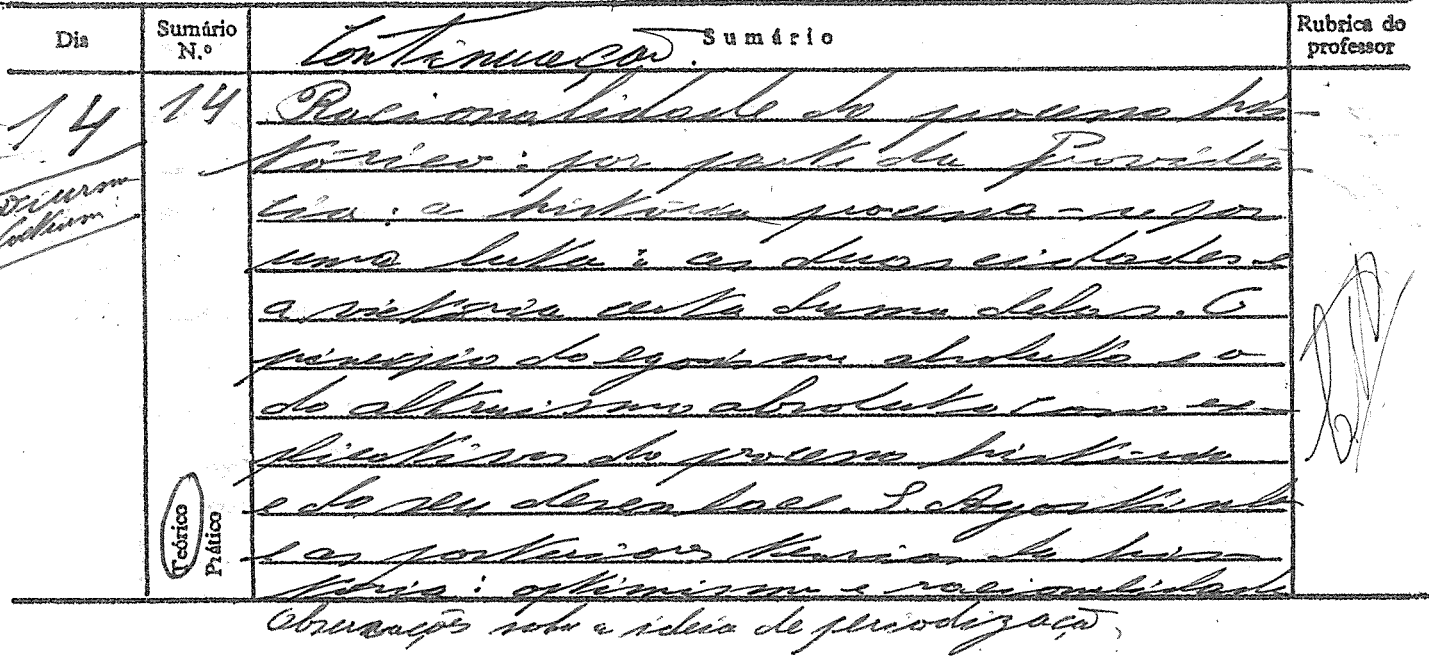 Dia
Sumário N.º
Sumário
Rubrica do professor
Continuação.
14
14
Diurno
Racionalidade do processo his-
tórico: por parte da Providên
cia: a história processa-se por
uma luta: as duas cidades e
a victória certa duma delas. O
princípio do egoísmo absoluto e o
do altruismo absoluto como ex-
plicativos do processo histórico
e do seu desenlace. S. Agostinho
e as posteriores teorias da his-
tória: optimismo e racionalidade
Teórico
Prático
Observações sobre a ideia de periodização.